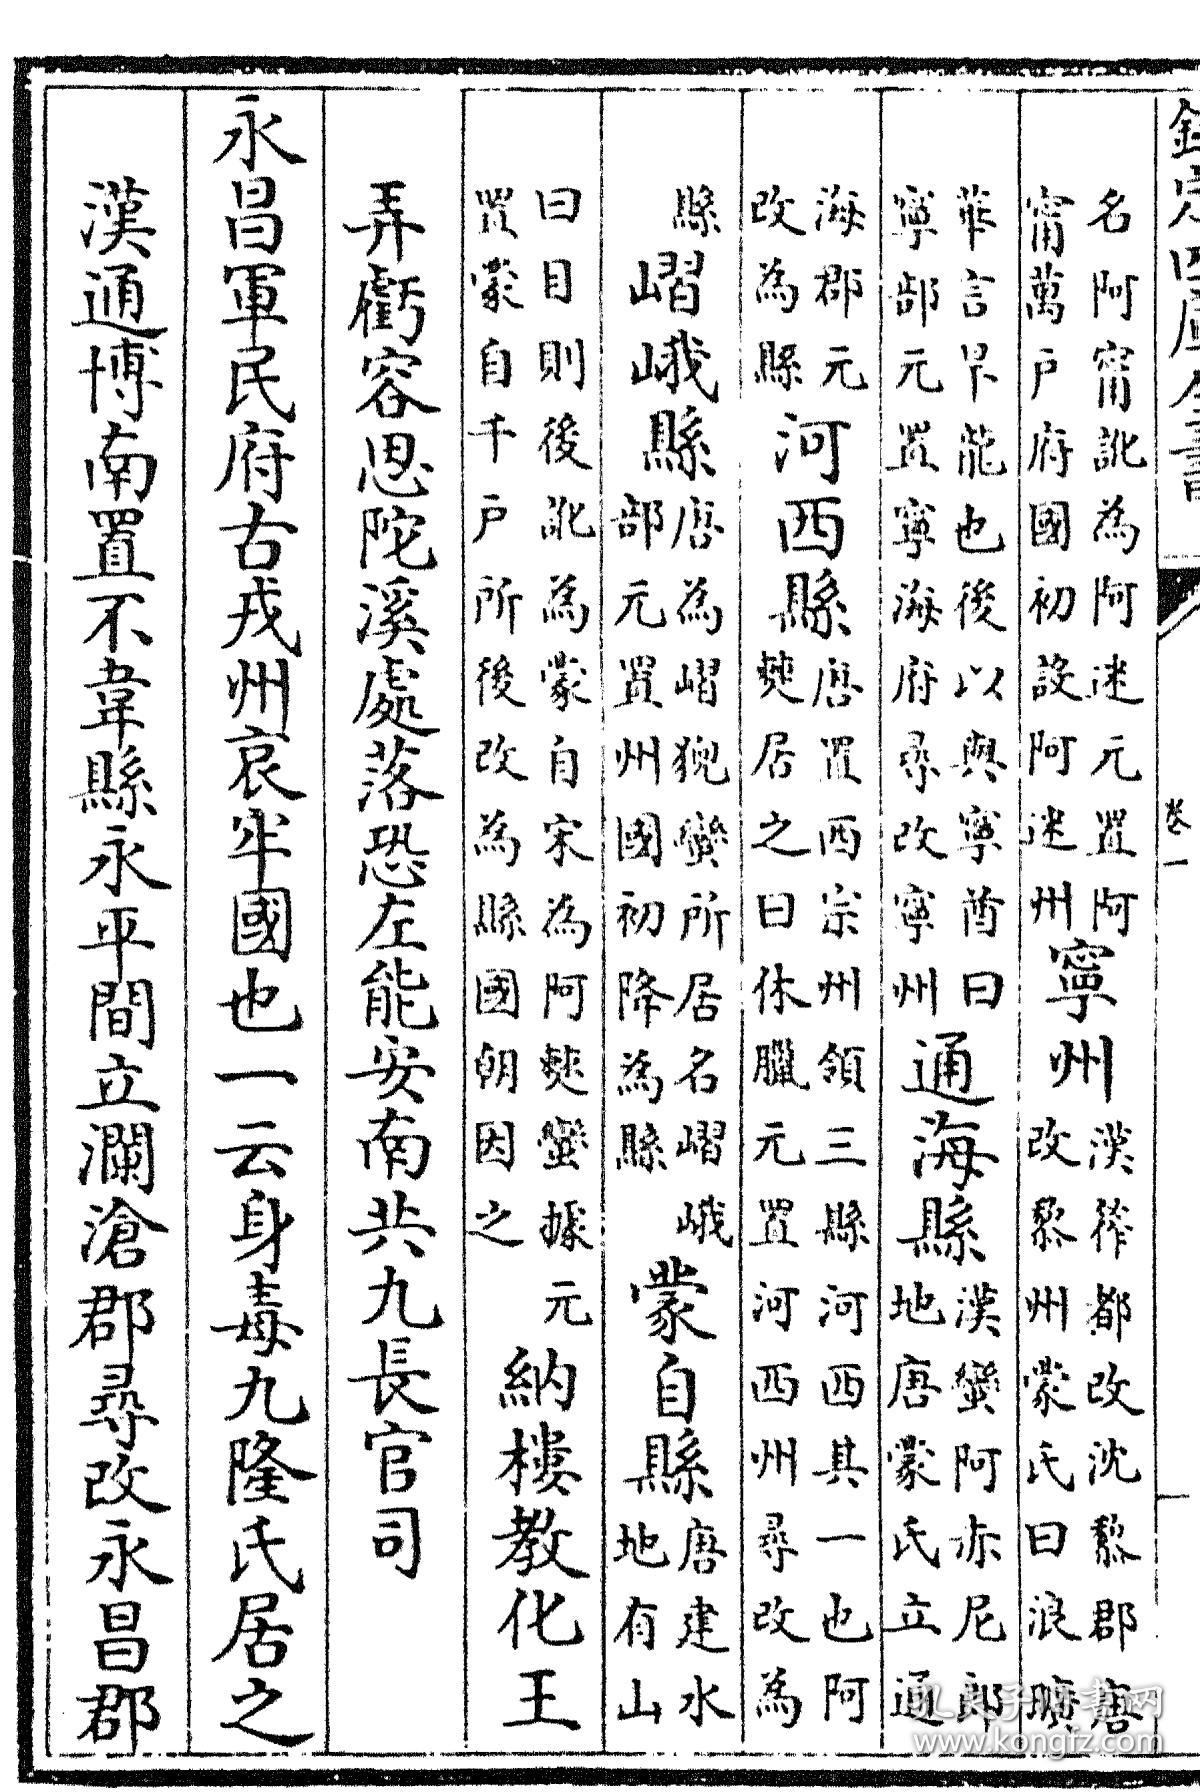 欽定四庫全書
卷一
名阿甯訛為阿迷元置阿
甯萬戶府國初設阿迷州
寧州
漢筰都改沈黎郡唐
改黎州蒙氏曰浪曠
華言旱龍也後以與寧酋曰
寧部元置寧海府尋改寧州
通海縣
漢蠻阿赤尼郎
地唐蒙氏立通
海郡元
改為縣
河西縣
唐置西宗州領三縣河西其一也阿
僰居之曰休臘元置河西州尋改為
縣
嶍峨縣
唐為嶍猊蠻所居名嶍峨
部元置州國初降為縣
蒙自縣
唐建水
地有山
曰目則後訛為蒙自宋為阿僰蠻據元
置蒙自千戶所後改為縣國朝因之
納樓教化王
弄虧容思陀溪處落恐左能安南共九長官司
永昌軍民府古戎州哀牢國也一云身毒九隆氏居之
漢通博南置不韋縣永平間立瀾滄郡尋改永昌郡
孔夫子旧書网
www.kongfz.com